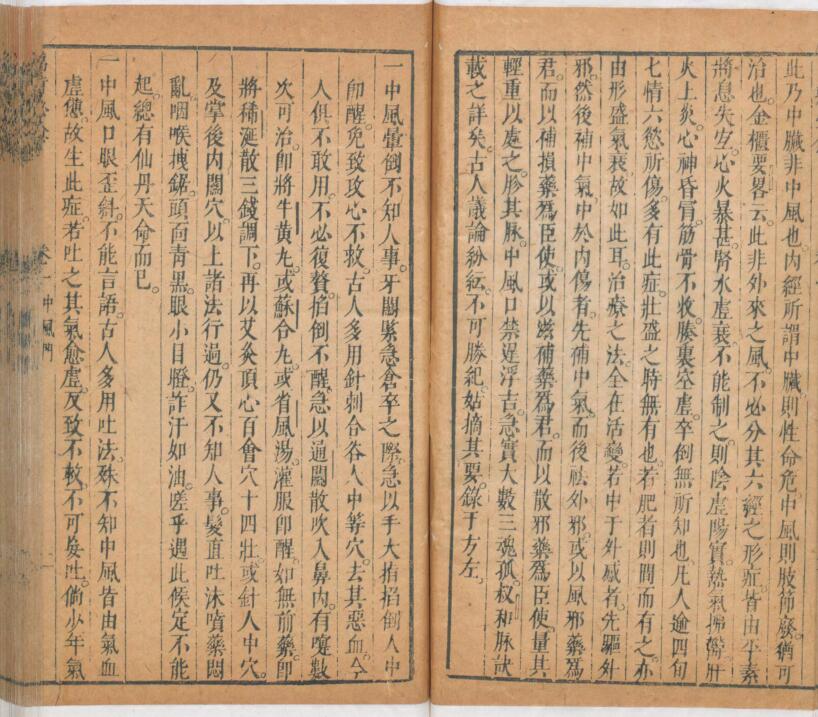 此乃中臟非中風也內經所謂中臟則性命危中風則肢節廢猶可
治也金櫃要畧云此非外來之風不必分其六經之形症皆由平素
將息失宜心火暴甚腎水虛衰不能制之則陰虛陽實熱氣拂鬱肝
火上炎心神昏冒筋骨不收腠裏空虛卒倒無所知也凡人逾四旬
七情六慾所傷多有此症壯盛之時無有也若肥者則間而有之亦
由形盛氣衰故如此耳治療之法全在活變若中于外感者先驅外
邪然後補中氣中於內傷者先補中氣而後祛外邪或以風邪藥爲
君而以補損藥爲臣使或以滋補藥爲君而以散邪藥爲臣使量其
輕重以處之胗其脉中風口禁遲浮吉急實大數三魂孤叔和脉訣
載之詳矣古人議論紛紜不可勝紀姑摘其要錄于方左
一中風暈倒不知人事牙關緊急倉卒之際急以手大指掐倒人中
卽醒免致攻心不救古人多用針刺合谷人中等穴去其惡血今
人俱不敢用不必復贅掐倒不醒急以通關散吹入鼻內有嚏數
次可治卽將牛黃九或蘇合九或省風湯灌服卽醒如無前藥卽
將稀涎散三錢調下再以艾灸頂心百會穴十四壯或針人中穴
及掌後內關穴以上諸法行過仍又不知人事髮直吐沫噴藥悶
亂咽喉拽鋸頭面青黑眼小目瞪詐汗如油嗟乎遇此候定不能
起總有仙丹天命而已
一中風口眼歪斜不能言語古人多用吐法殊不知中風皆由氣血
虛憊故生此症若吐之其氣愈虛反致不救不可妄吐倘少年氣
卷一 中風門